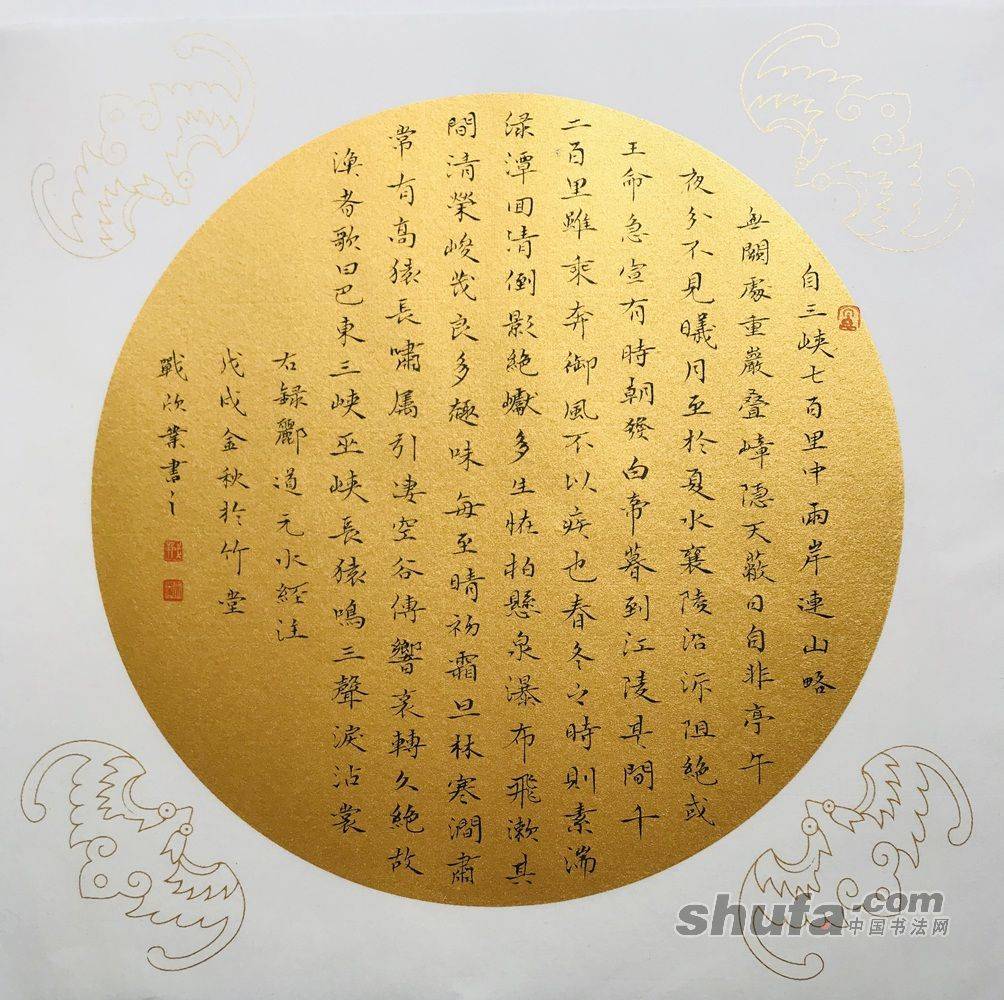 自三峡七百里中兩岸連山略
無闕處重巖叠嶂隱天蔽日自非亭午
夜分不見曦月至於夏水襄陵沿泝阻絶或
王命急宣有時朝發白帝暮到江陵其間千
二百里雖乘奔御風不以疾也春冬之時則素湍
渌潭回清倒影絶巘多生恠柏懸泉瀑布飛漱其
間清榮峻茂良多趣味每至晴初霜旦林寒澗肅
常有高猿長嘯属引凄空谷傳響哀轉久絶故
漁者歌曰巴東三峡巫峡長猿鳴三聲淚沾裳
右録酈道元水經注
戊戌金秋於竹堂
戰欣業書之
shufa.com
中国书法网